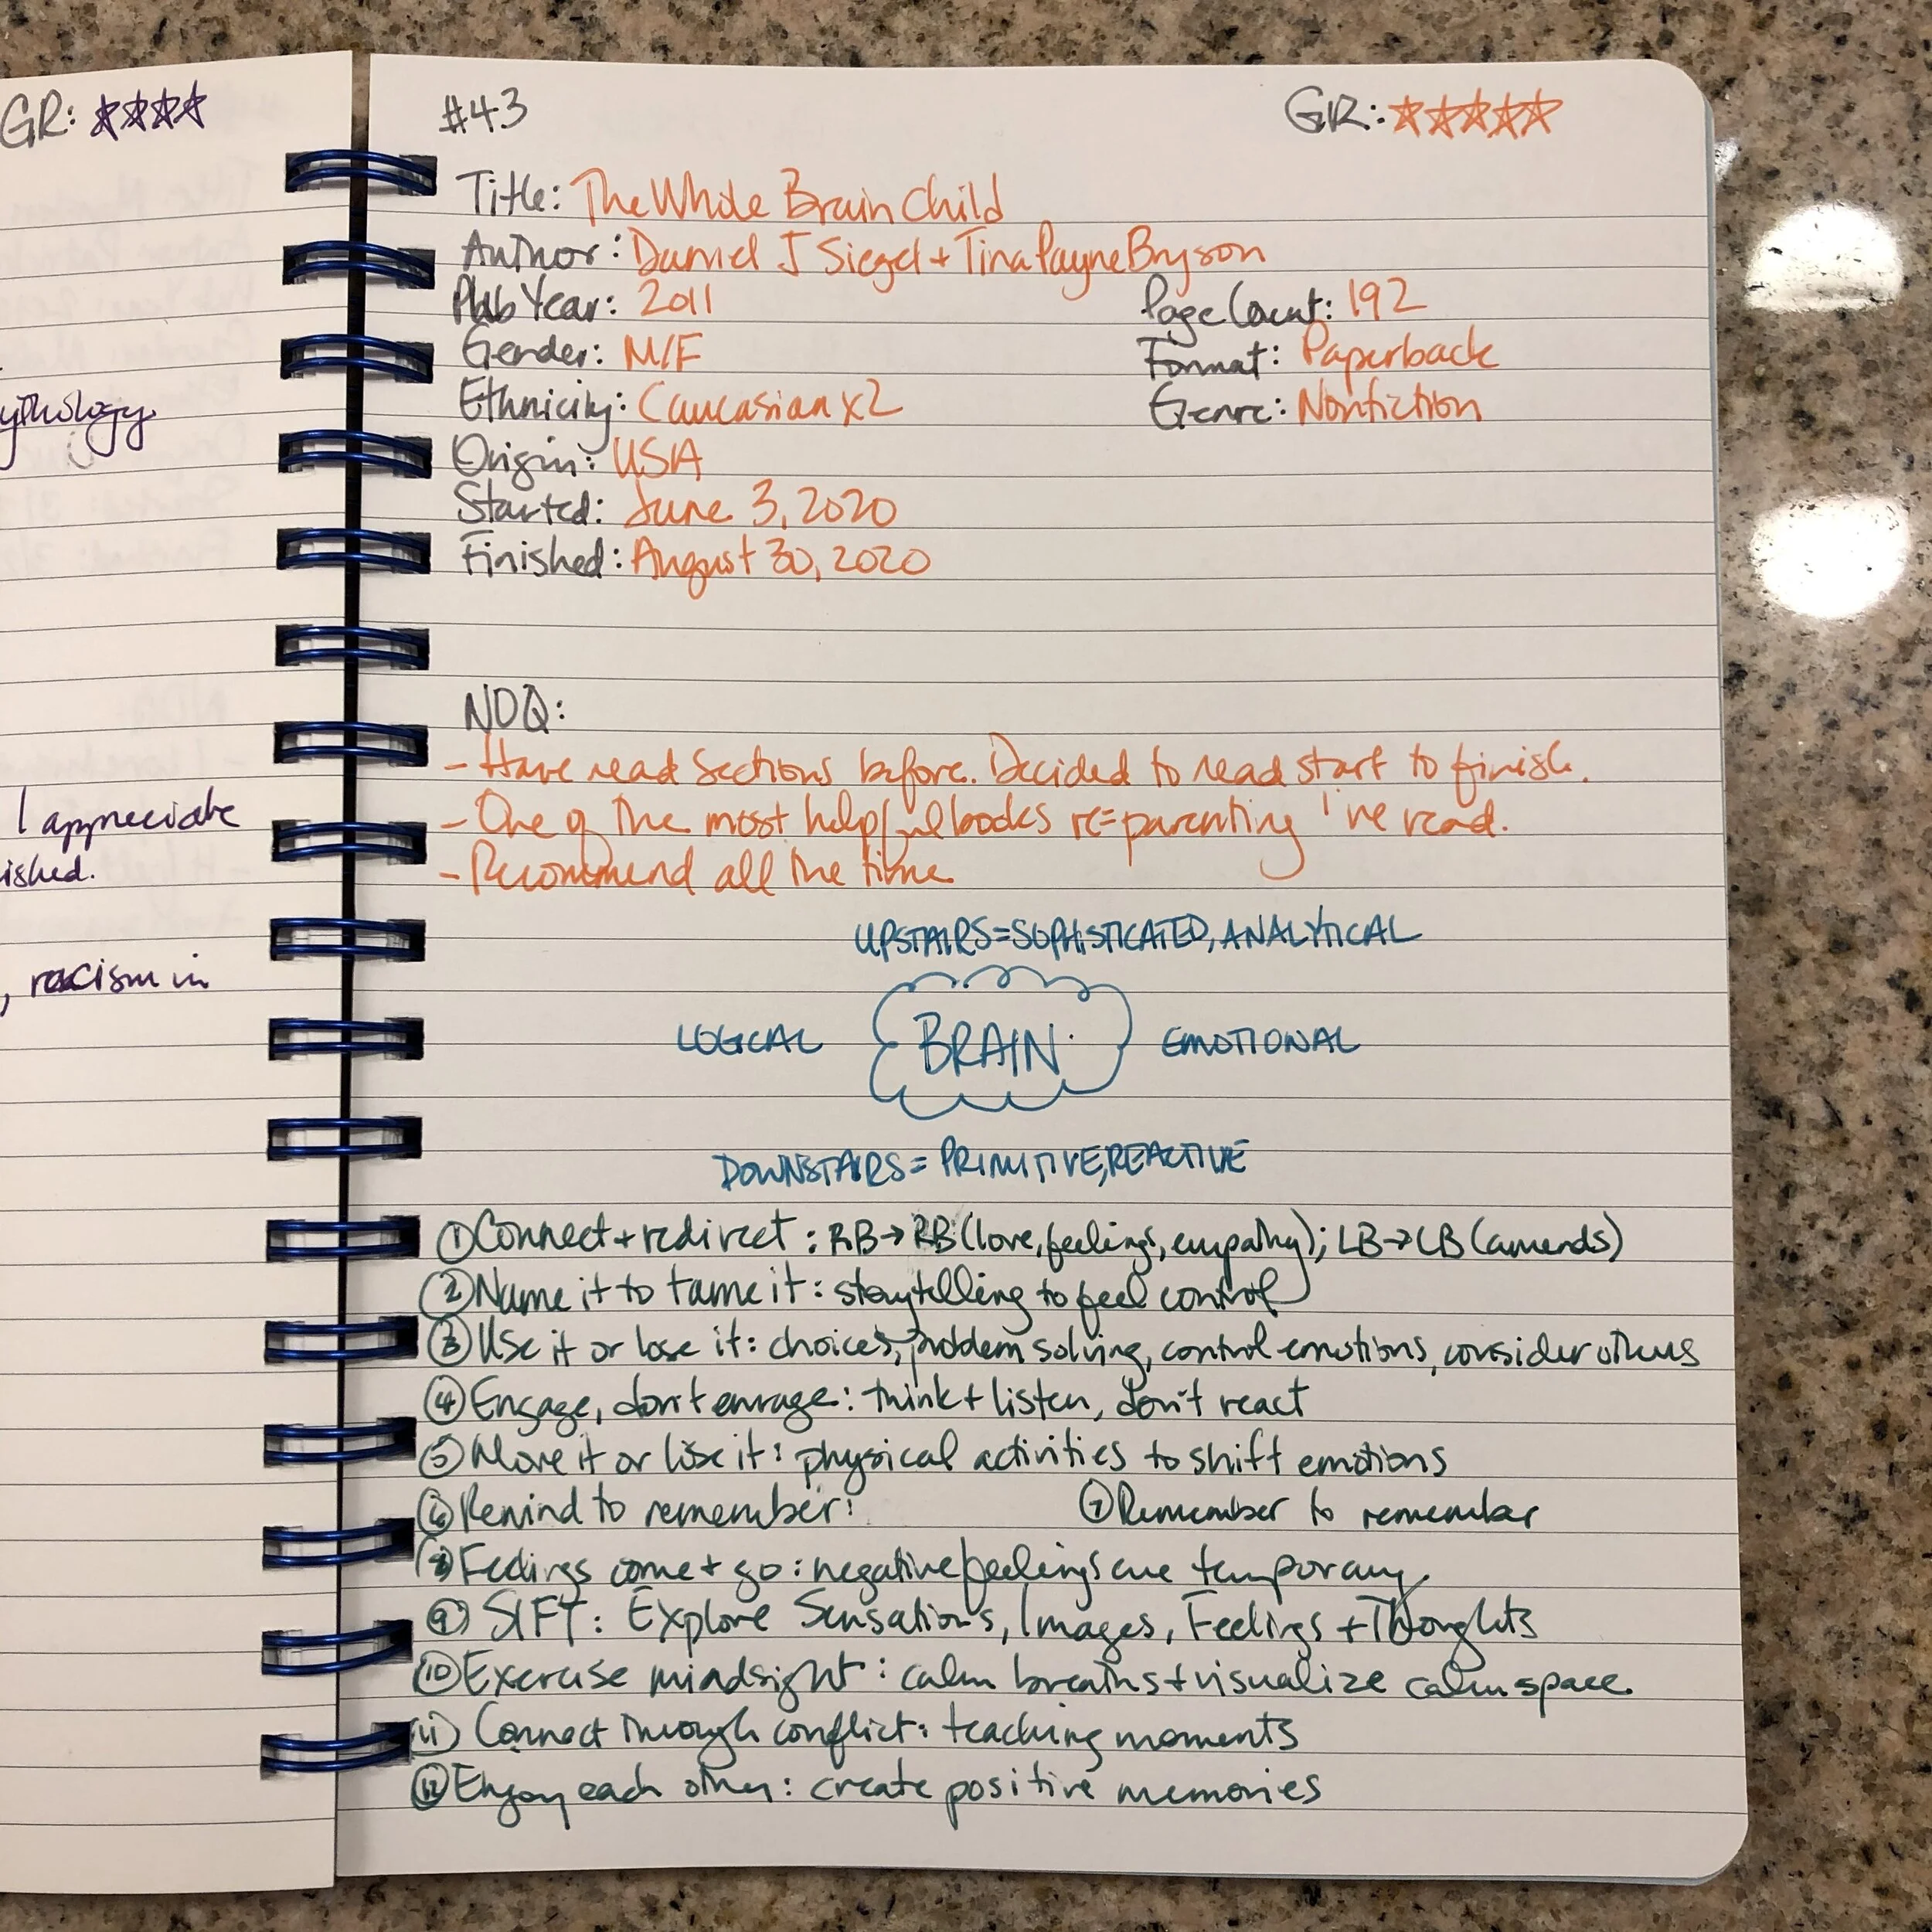 GR: ☆☆☆☆
ythology
I appreciate
ished.
, racism in
#43 GR: ☆☆☆☆☆
Title: The Whole Brain Child
Author: Daniel J Siegel + Tina Payne Bryson
Pub Year: 2011 Page Count: 192
Gender: M/F Format: Paperback
Ethnicity: Caucasian x2 Genre: Nonfiction
Origin: USA
Started: June 3, 2020
Finished: August 30, 2020
NDQ:
- Have read sections before. Decided to read start to finish.
- One of the most helpful books re=parenting I've read.
- Recommend all the time.
UPSTAIRS=SOPHISTICATED, ANALYTICAL
LOGICAL BRAIN EMOTIONAL
DOWNSTAIRS= PRIMITIVE, REACTIVE
① Connect + redirect: RB→RB (love, feelings, empathy); LB→LB (amends)
② Name it to tame it: storytelling to feel control
③ Use it or lose it: choices, problem solving, control emotions, consider others
④ Engage, don't enrage: think + listen, don't react
⑤ Move it or lose it: physical activities to shift emotions
⑥ Remind to remember: ⑦ Remember to remember
⑧ Feelings come + go: negative feelings are temporary.
⑨ SIFT: Explore Sensations, Images, Feelings + Thoughts
⑩ Exercise mindsight: calm breaths + visualize calm space.
⑪ Connect through conflict: teaching moments
⑫ Enjoy each other: create positive memories